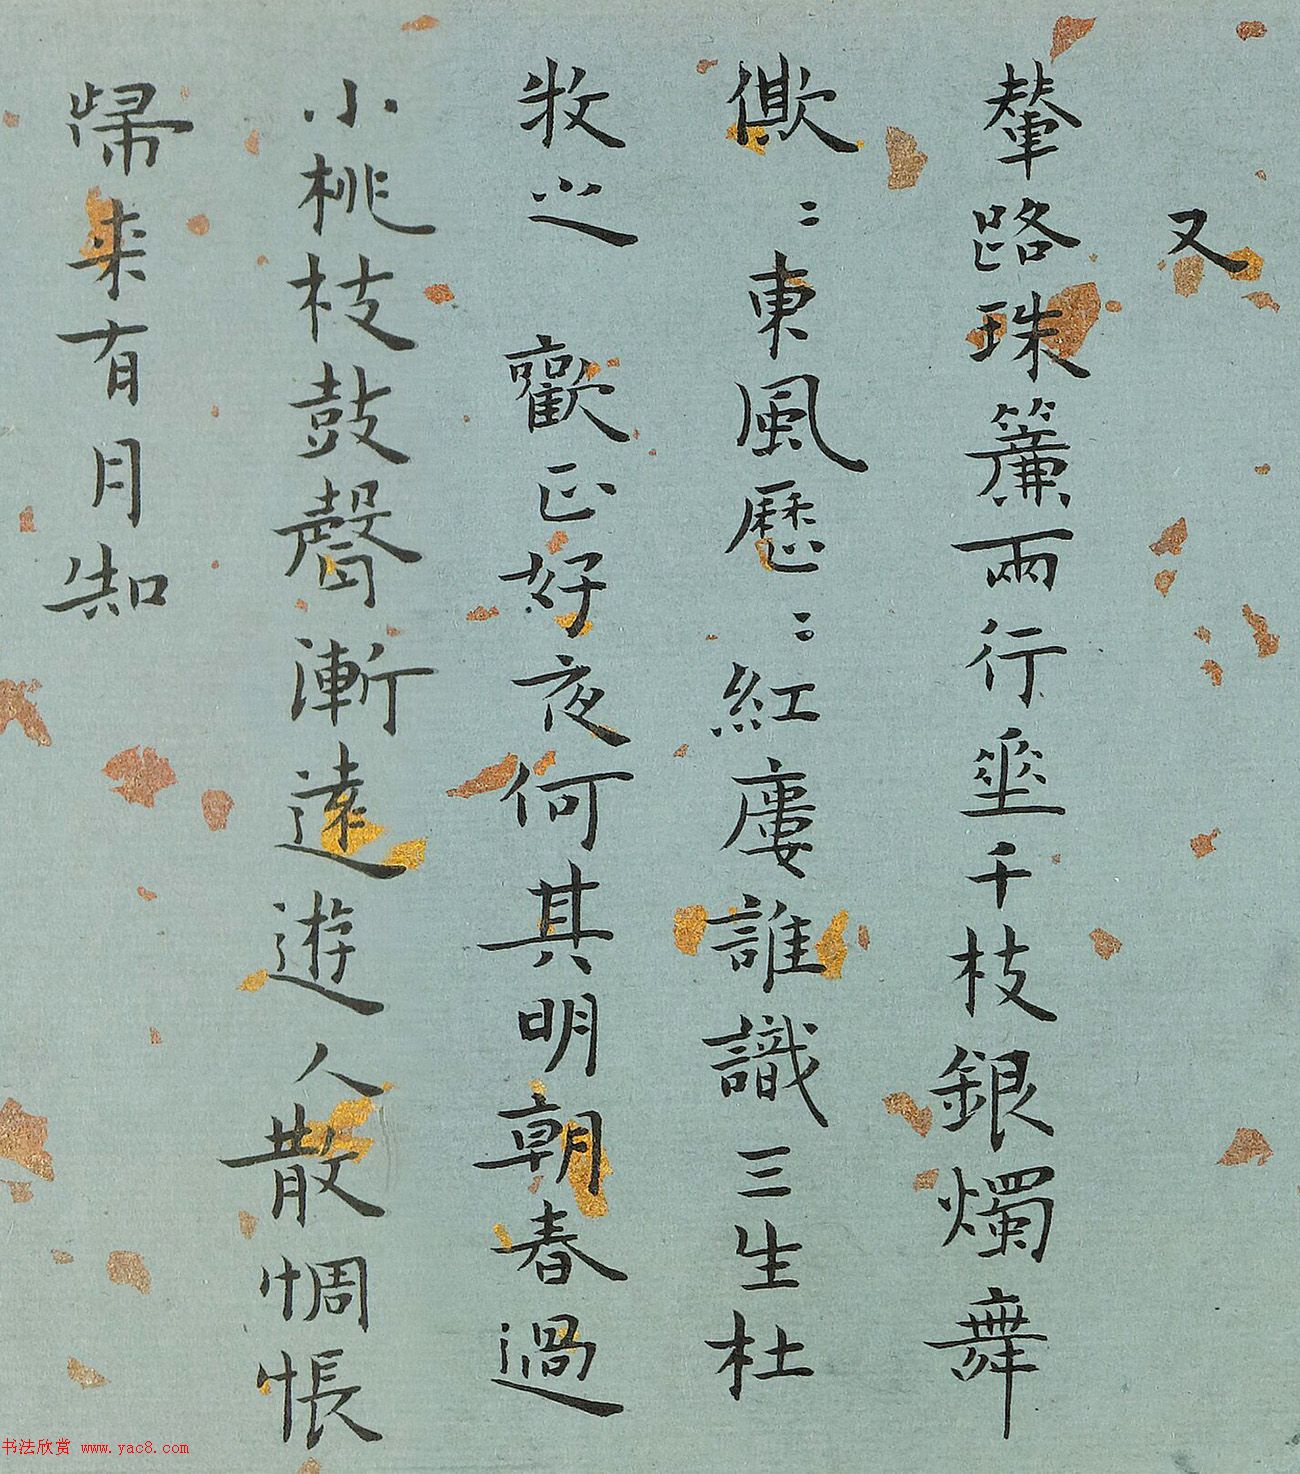 又
輦路珠簾兩行垂千枝銀燭舞
僛〻東風歷〻紅樓誰識三生杜
牧之 歡正好夜何其明朝春過
小桃枝鼓聲漸遠遊人散惆悵
歸来有月知
书法欣赏 www.yac8.com